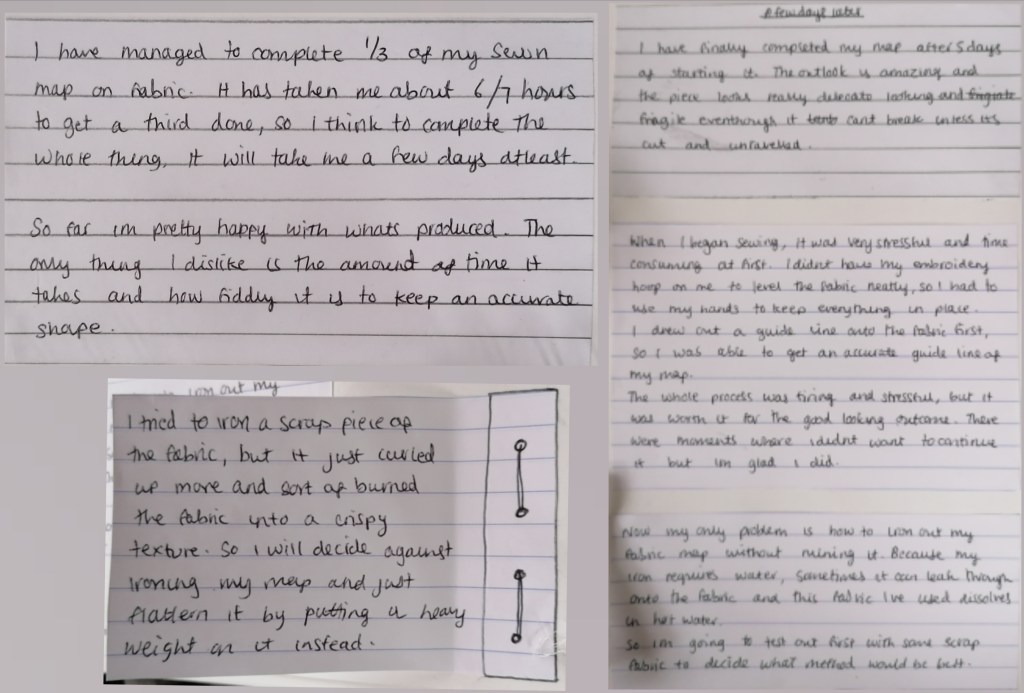 I have managed to complete 1/3 of my sewn
map on fabric. It has taken me about 6/7 hours
to get a third done, so I think to complete the
whole thing, it will take me a few days atleast.
So far im pretty happy with whats produced. The
only thing I dislike is the amount of time it
takes and how fiddly it is to keep an accurate
shape.
A few days later
I have finally completed my map after 5 days
of starting it. The outlook is amazing and
the piece looks really delecate looking and
fragile eventhough it cant break unless its
cut and unravelled.
When I began sewing, it was very stressful and time
consuming at first. I didnt have my embroidery
hoop on me to level the fabric neatly, so I had to
use my hands to keep everything in place.
I drew out a guide line onto the fabric first,
so I was able to get an accurate guide line of
my map.
The whole process was tiring and stressful, but it
was worth it for the good looking outcome. There
were moments where i didnt want to continue
it but im glad i did.
Now my only problem is how to iron out my
fabric map without ruining it. Because my
iron requires water, sometimes it can leak through
onto the fabric and this fabric I've used dissolves
in hot water.
So im going to test out first with some scrap
fabric to decide what method would be best.
iron out my
I tried to iron a scrap piece of
the fabric, but it just curled
up more and sort of burned
the fabric into a crispy
texture. So I will decide against
ironing my map and just
flattern it by putting a heavy
weight on it instead.